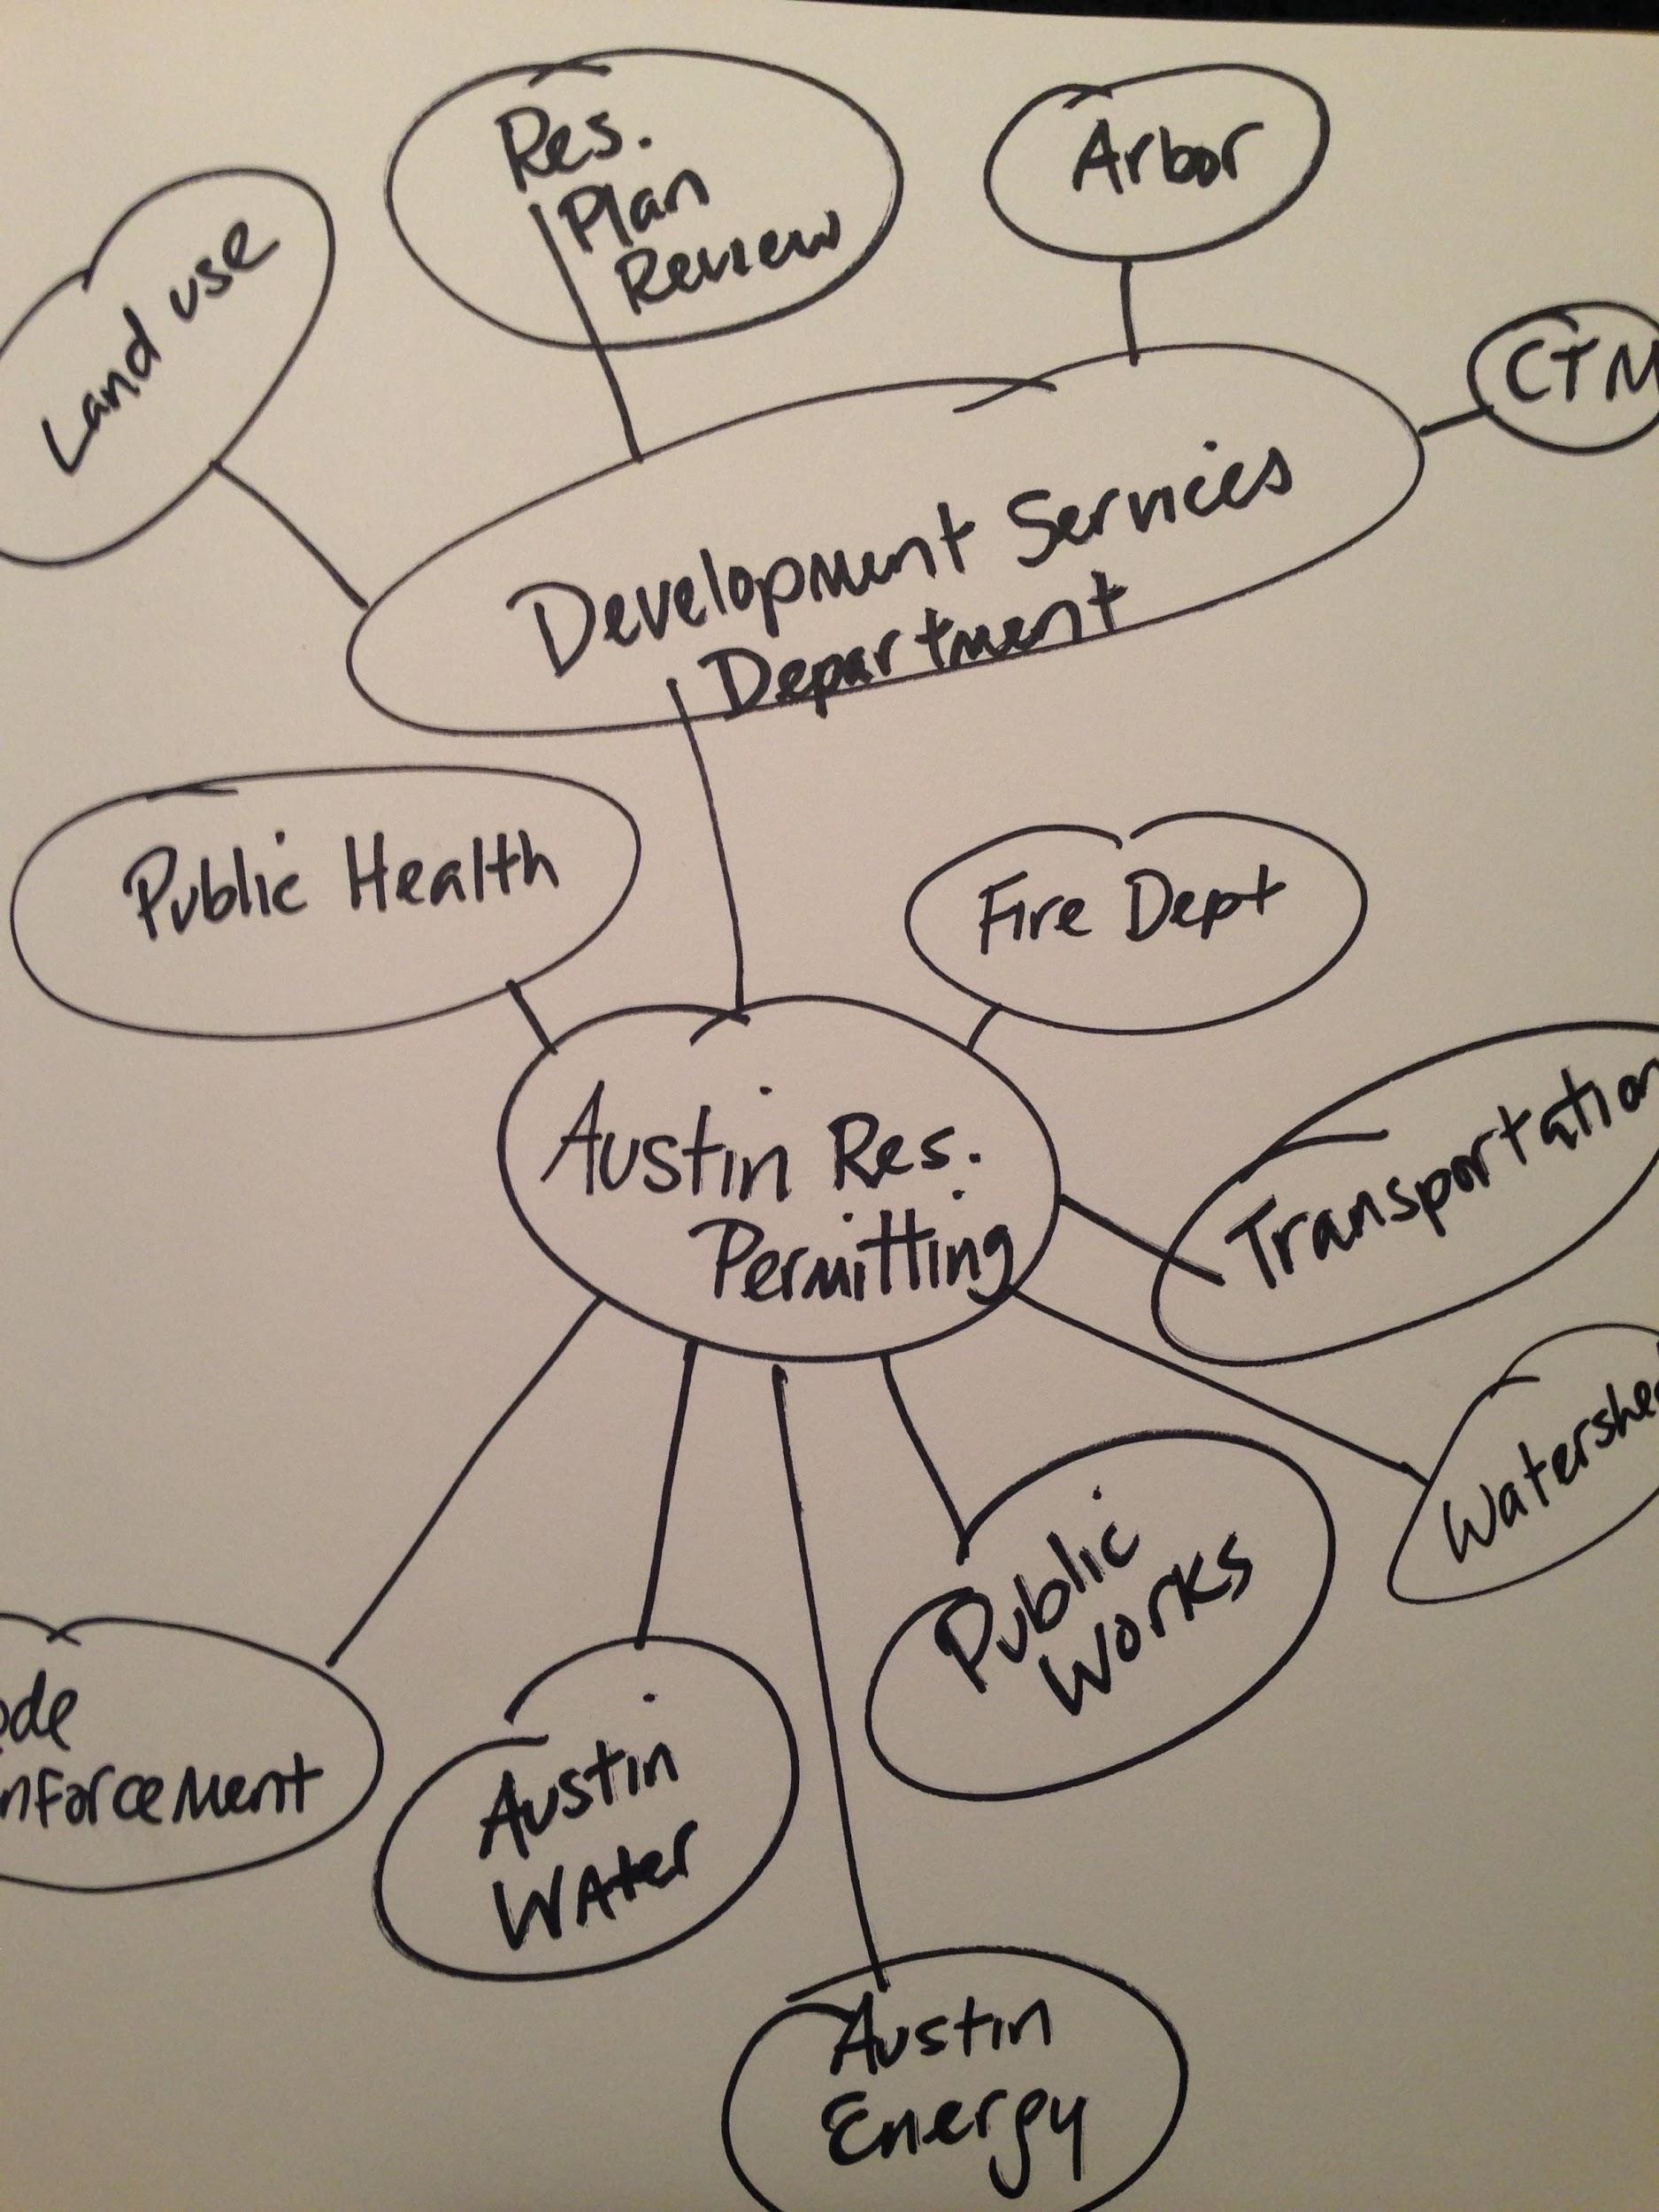 Res.
Plan
Review
Arbor
Land use
CTM
Development Services
Department
Public Health
Fire Dept
Austin Res.
Permitting
Transportation
Watershe
Public
Works
ode
nforcement
Austin
Water
Austin
Energy